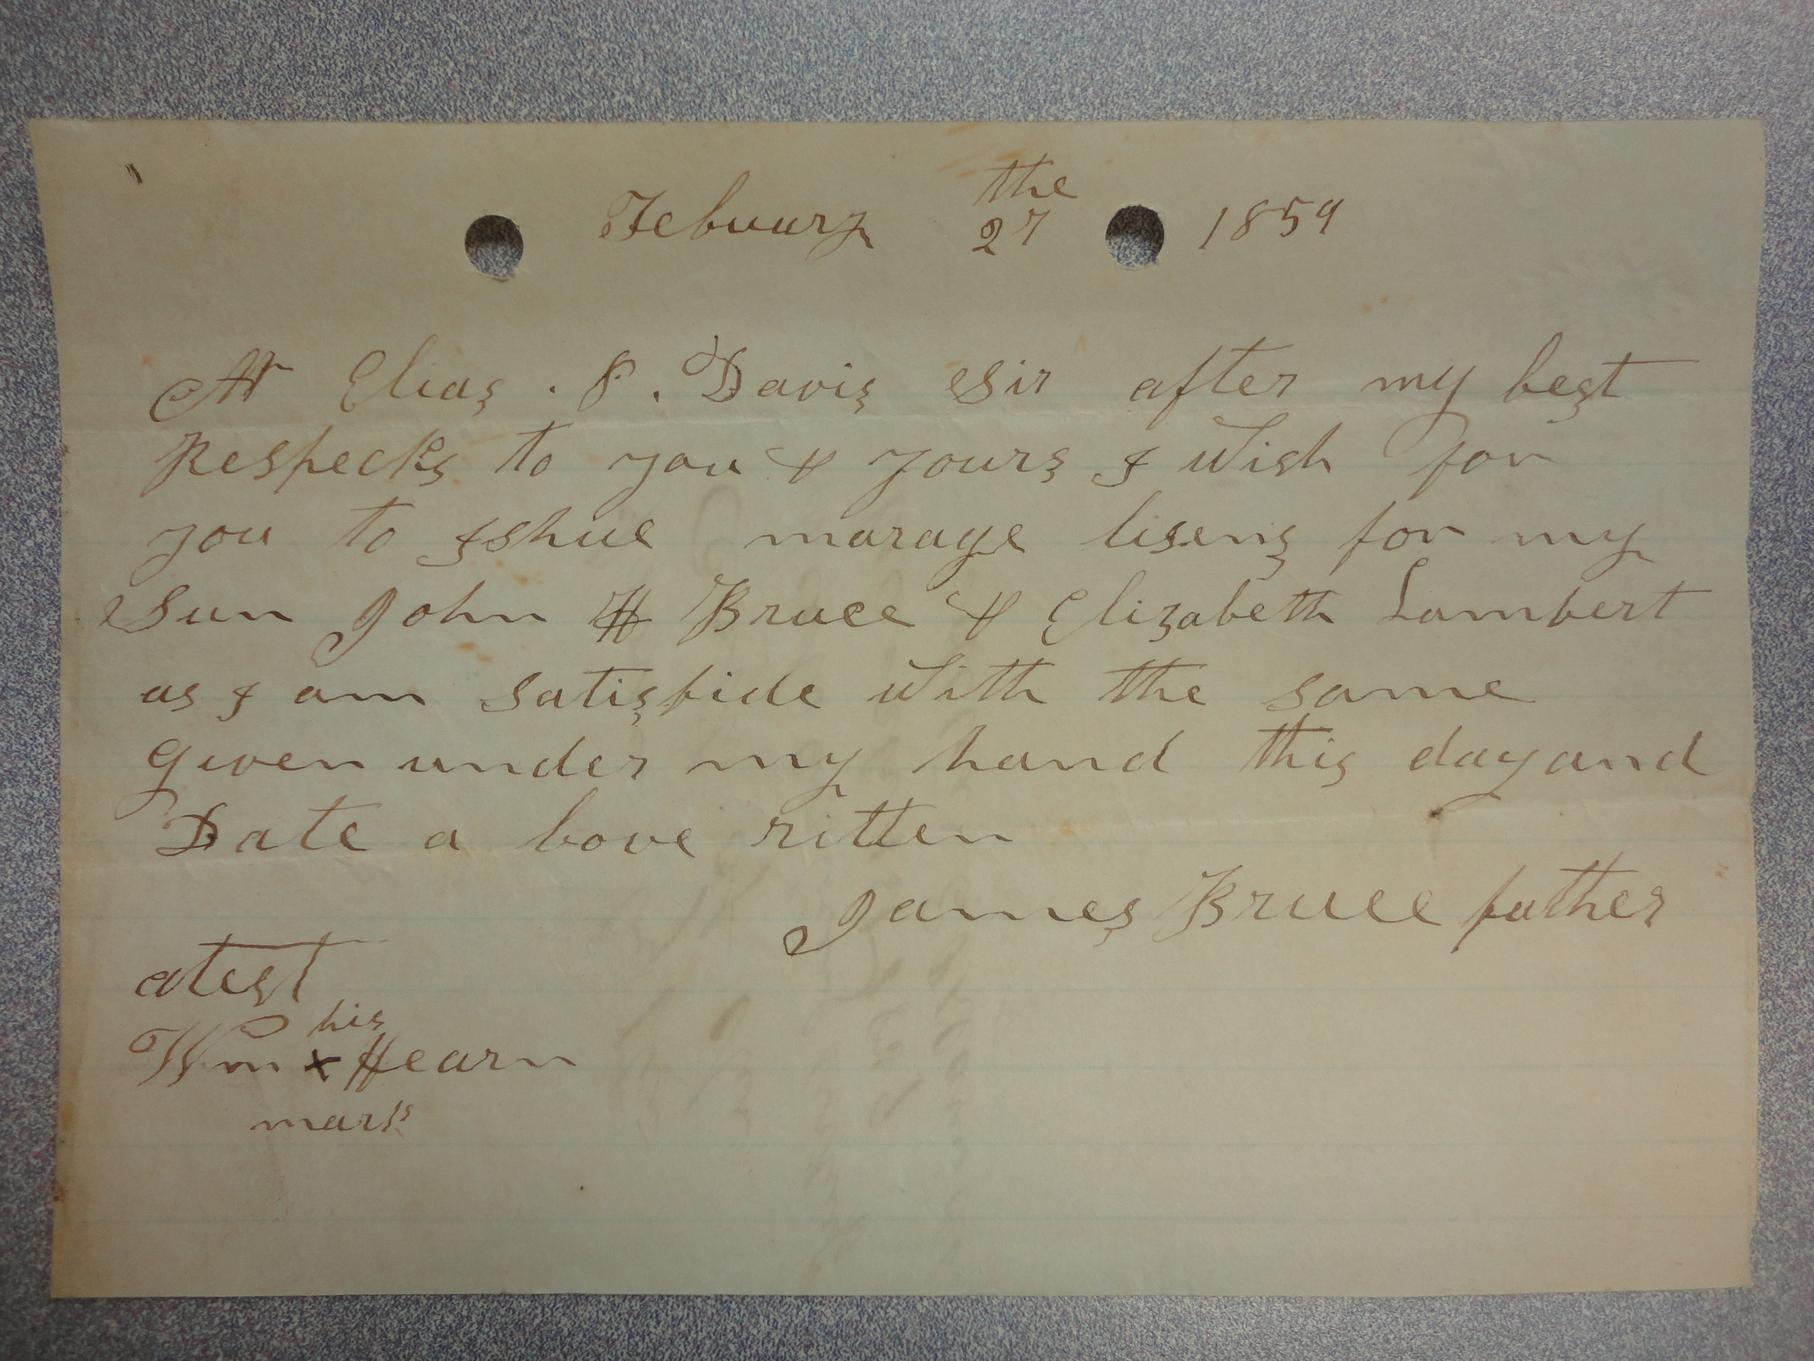 Febuary the 27 1859
Mr Elias . P . Davis Sir after my best
Respecks to you & yours I wish for
you to Ishue marage lisens for my
Sun John H Bruce & Elizabeth Lambert
as I am satisfide with the same
given under my hand this day and
Date a bove ritten
James Bruce father
atest
his
Wm x Hearn
mark